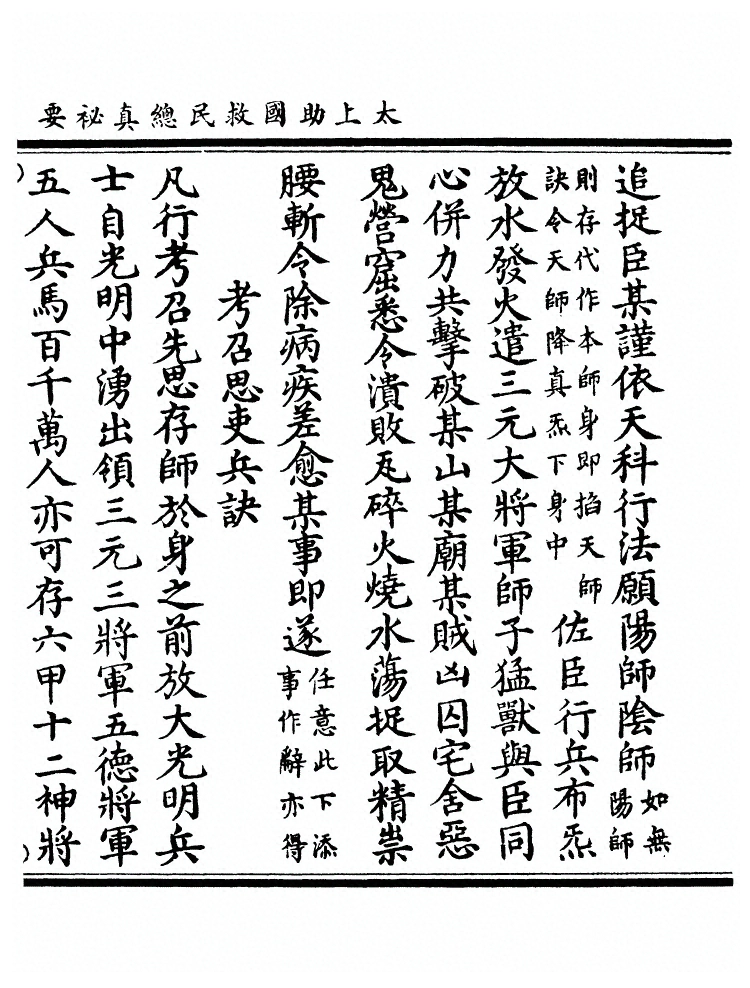 太上助國救民總真祕要
追捉臣某謹依天科行法願陽師陰師如無陽師
則存代作本師身即掐天師訣令天師降真炁下身中佐臣行兵布炁
放水發火遣三元大將軍師子猛獸與臣同
心併力共擊破某山某廟某賊凶囚宅舍惡
鬼營窟悉令潰敗瓦碎火燒水蕩捉取精祟
腰斬令除病疾差愈某事即遂任意此下添事作辭亦得
考召思吏兵訣
凡行考召先思存師於身之前放大光明兵
士自光明中湧出領三元三將軍五德將軍
五人兵馬百千萬人亦可存六甲十二神將